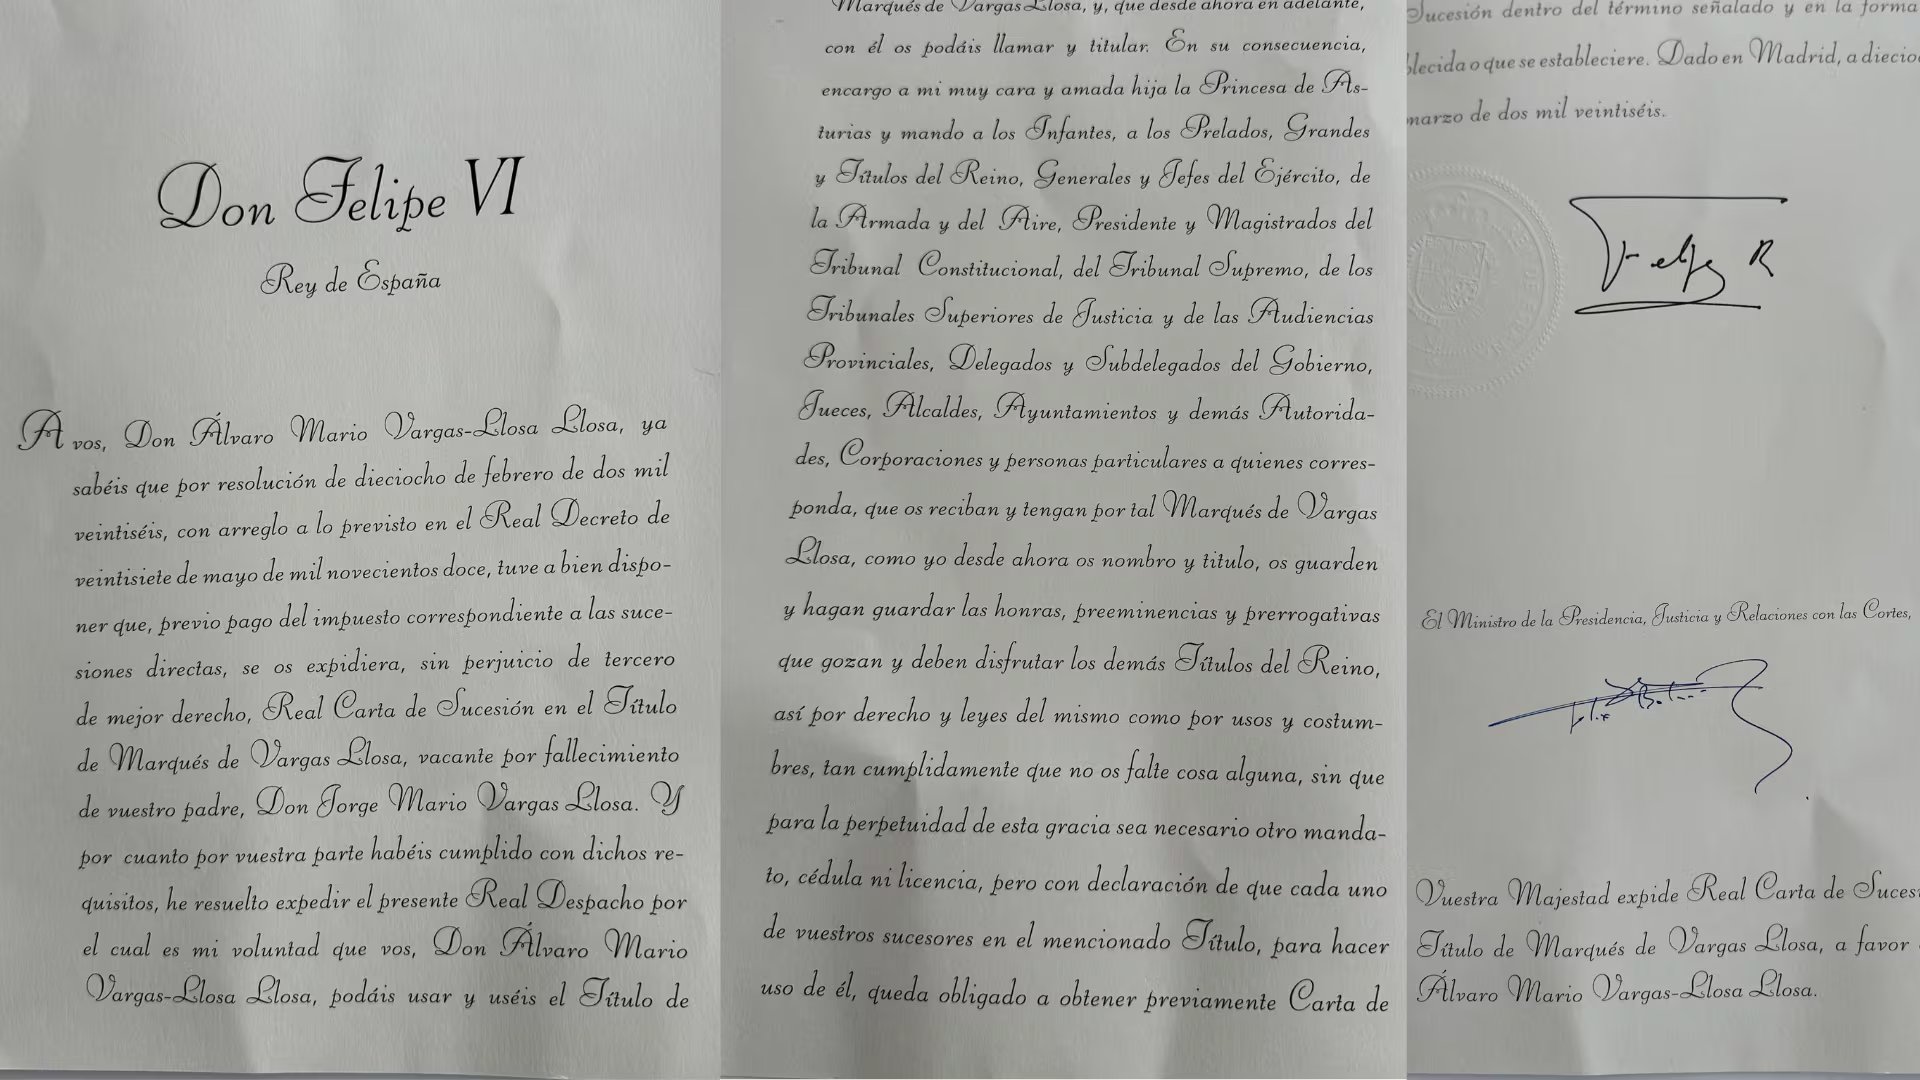 Don Felipe VI
Rey de España
A vos, Don Álvaro Mario Vargas-Llosa Llosa, ya
sabéis que por resolución de dieciocho de febrero de dos mil
veintiséis, con arreglo a lo previsto en el Real Decreto de
veintisiete de mayo de mil novecientos doce, tuve a bien dispo-
ner que, previo pago del impuesto correspondiente a las suce-
siones directas, se os expidiera, sin perjuicio de tercero
de mejor derecho, Real Carta de Sucesión en el Título
de Marqués de Vargas Llosa, vacante por fallecimiento
de vuestro padre, Don Jorge Mario Vargas Llosa. Y
por cuanto por vuestra parte habéis cumplido con dichos re-
quisitos, he resuelto expedir el presente Real Despacho por
el cual es mi voluntad que vos, Don Álvaro Mario
Vargas-Llosa Llosa, podáis usar y uséis el Título de
Marqués de Vargas Llosa, y, que desde ahora en adelante,
con él os podáis llamar y titular. En su consecuencia,
encargo a mi muy cara y amada hija la Princesa de As-
turias y mando a los Infantes, a los Prelados, Grandes
y Títulos del Reino, Generales y Jefes del Ejército, de
la Armada y del Aire, Presidente y Magistrados del
Tribunal Constitucional, del Tribunal Supremo, de los
Tribunales Superiores de Justicia y de las Audiencias
Provinciales, Delegados y Subdelegados del Gobierno,
Jueces, Alcaldes, Ayuntamientos y demás Autorida-
des, Corporaciones y personas particulares a quienes corres-
ponda, que os reciban y tengan por tal Marqués de Vargas
Llosa, como yo desde ahora os nombro y titulo, os guarden
y hagan guardar las honras, preeminencias y prerrogativas
que gozan y deben disfrutar los demás Títulos del Reino,
así por derecho y leyes del mismo como por usos y costum-
bres, tan cumplidamente que no os falte cosa alguna, sin que
para la perpetuidad de esta gracia sea necesario otro manda-
to, cédula ni licencia, pero con declaración de que cada uno
de vuestros sucesores en el mencionado Título, para hacer
uso de él, queda obligado a obtener previamente Carta de
Sucesión dentro del término señalado y en la forma
blecida o que se estableciere. Dado en Madrid, a diecio
marzo de dos mil veintiséis.
Felipe R
El Ministro de la Presidencia, Justicia y Relaciones con las Cortes,
Vuestra Majestad expide Real Carta de Suces
Título de Marqués de Vargas Llosa, a favor
Álvaro Mario Vargas-Llosa Llosa.